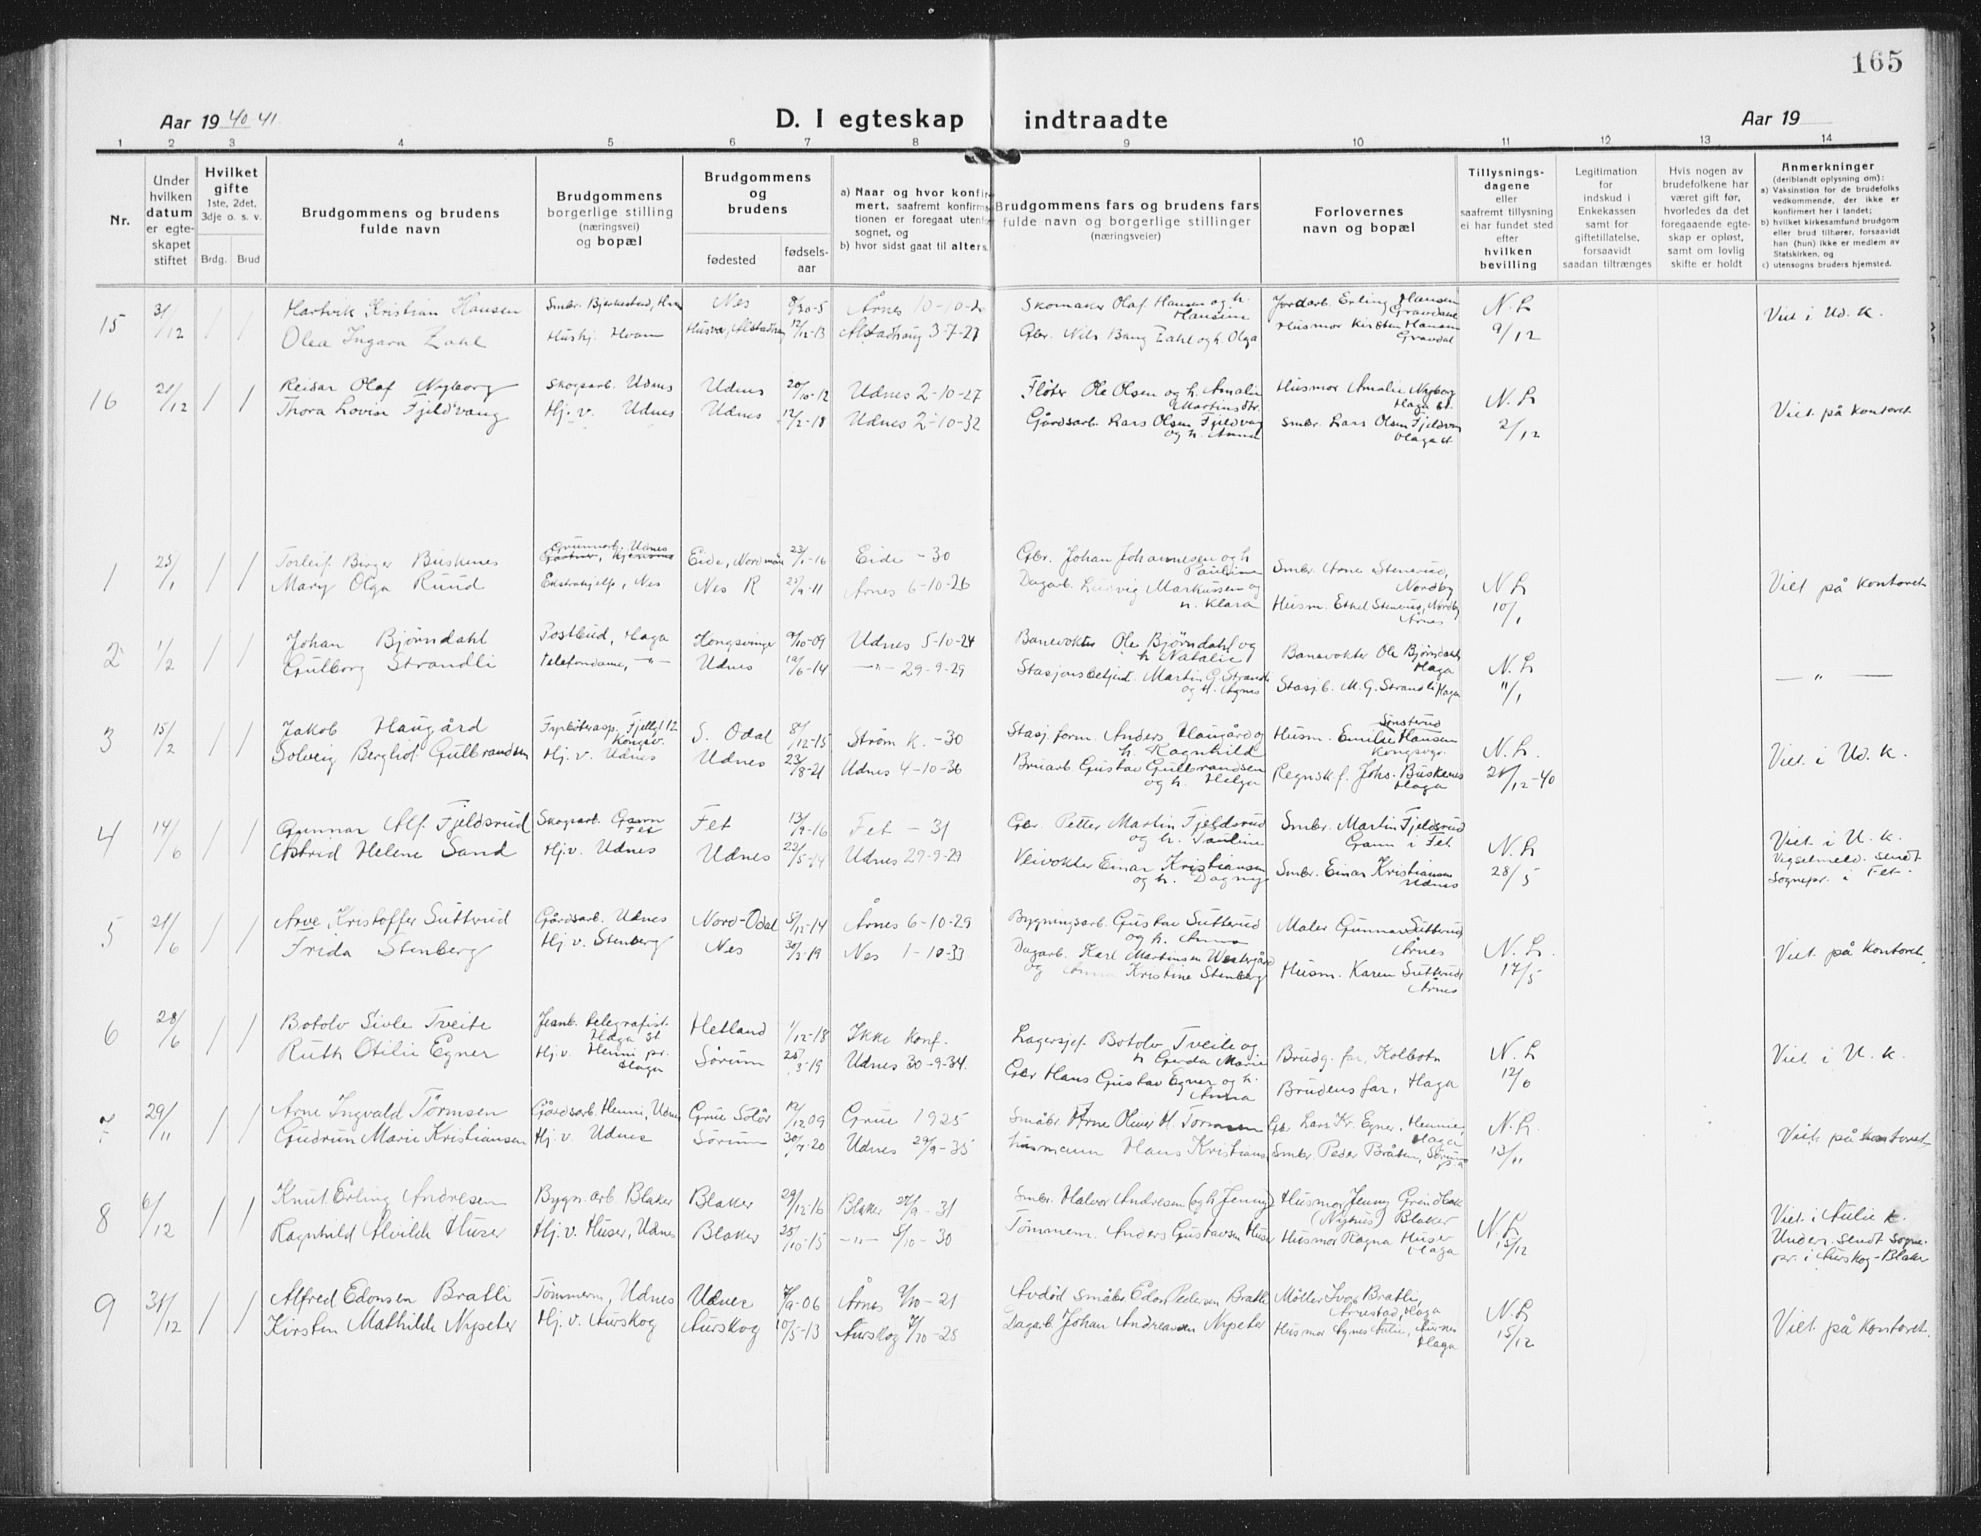 165
Aar 19 40-41.
D. I egteskap indtraadte
Aar 19
1 2 3 4 5 6 7 8 9 10 11 12 13 14
Nr.
Under hvilken datum er egteskapet stiftet
Hvilket gifte 1ste, 2det, 3dje o. s. v.
Brdg. Brud
Brudgommens og brudens fulde navn
Brudgommens borgerlige stilling (næringsvei) og bopæl
Brudgommens og brudens
fødested
fødsels-aar
a) Naar og hvor konfirmert, saafremt konfirmationen er foregaat utenfor sognet, og
b) hvor sidst gaat til alters.
Brudgommens fars og brudens fars fulde navn og borgerlige stillinger (næringsveier)
Forlovernes navn og bopæl
Tillysnings-dagene eller saafremt tillysning ei har fundet sted efter hvilken bevilling
Legitimation for indskud i Enkekassen samt for giftetillatelse, forsaavidt saadan tiltrænges
Hvis nogen av brudefolkene har været gift før, hvorledes da det foregaaende egteskap er opløst, samt om lovlig skifte er holdt
Anmerkninger (deriblandt oplysning om):
a) Vaksinstion for de brudefolks vedkommende, der ikke er konfirmert her i landet;
b) hvilket kirkesamfund brudgom eller brud tilhører, forsaavidt han (hun) ikke er medlem av Statskirken, og
c) utensogns bruders hjemsted.
15 31/12 / / Hartvik Kristian Hansen Smbr. Bjerkestad, Nes 8/10-5 Årnes 10-10-20 Skomaker Olaf Hansen og h. Hansine Jordarb. Erling Hansen Gravdal N. L. Viet i Ud. k.
Olea Ingara Zahl Hushj. Hvam Alstadhaug 12/12-13 Alstadhaug 3-7-27 Gbr. Nils Bang Zahl og h. Olga Husmor Kirsten Hansen Gravdal 9/12
16 21/12 / / Reidar Olaf Nyborg Skogsarb. Udnes Udnes 20/10-12 Udnes 2-10-27 Fløter Ole Olsen og h. Amalie Martinsdtr. Husmor Amalie Nyborg Haga st. N. L. Viet på kontoret
Thora Lovise Fjeldvang Hj. v. Udnes Udnes 12/2-18 Udnes 2-10-32 Gårdsarb. Lars Olsen Fjeldvang og h. Anna Smbr. Lars Olsen Fjeldvang Haga st. 2/12
1 25/1 / / Torleif Birger Buskenes Udnes Eide, Nordmør 23/1-16 Eide -30 Gbr. Johan Johannesen og h. Pauline Smbr. Arne Stenerud, Nordby N. L. Viet på kontoret
Mary Olga Ruud Ekstrahjelp, Nes Nes R 25/9-11 Årnes 6-10-26 Dagarb. Ludvig Markussen og h. Klara Husm. Ethel Stenerud, Nordby Årnes 10/1
2 1/2 / / Johan Bjørndahl Postbud, Haga Kongsvinger 9/10-09 Udnes 5-10-24 Banevokter Ole Bjørndahl og h. Natalie Banevokter Ole Bjørndahl Haga N. L. — " —
Gulborg Strandli Telefondame, -"- Udnes 19/6-14 -"- 29-9-29 Stasjonsbetjent Martin G. Strandli og h. Agnes Stasj.b. M. G. Strandli Haga 11/1
3 15/2 / / Jakob Haugård Fyrbøterasp. Fjellgt 12 Kongsv. S. Odal 8/12-15 Strøm k. -30 Stasj. form. Anders Haugård og h. Ragnhilde Husm. Emilie Hansen Sønsterud Kongsvgr. N. L. Viet i Ud. k.
Solveig Berghof Gulbrandsen Hj. v. Udnes Udnes 23/8-21 Udnes 4-10-36 Bruarb. Gustav Gulbrandsen og h. Helga Regnsk.f. Johs. Buskenes Haga 28/12-40
4 14/6 / / Gunnar Alf. Fjeldsrud Skogsarb. Gann Fet Fet 13/9-16 Fet -31 Gbr. Petter Martin Fjeldsrud og h. Pauline Smbr. Martin Fjeldsrud Gann i Fet N. L. Viet i U. k.
Astrid Helene Sand Hj.v. Udnes Udnes 22/5-14 Udnes 29-9-29 Veivokter Einar Kristiansen og h. Dagny Smbr. Einar Kristiansen Udnes 28/5 Vigselmeld. sendt Sognepr. i Fet.
5 21/6 / / Arve Kristoffer Sutterud Gårdsarb. Udnes Nord-Odal 5/12-14 Årnes 6-10-29 Bygningsarb. Gustav Sutterud og h. Anna Maler Gunnar Sutterud, Årnes N. L. Viet på kontoret.
Frida Stenberg Hj. v. Stenberg Nes 30/3-19 Nes 1-10-33 Dagarb. Karl Martinsen Westergård og Anna Kristine Stenberg Husm. Karen Sutterud Årnes 17/5
6 28/6 / / Botolv Sivle Tveite Jernb. telegrafist. Haga St Hetland 1/12-18 Ikke konf. Lagersjef Botolv Tveite og h Gerda Marie Brudg. far, Kolbotn N. L. Viet i U. k.
Ruth Otilie Egner Hj.v. Henni pr. Haga Sørum 25/3-19 Udnes 30-9-34. Gbr Hans Gustav Egner og h. Anna Brudens far, Haga 12/6
7 29/11 / / Arne Ingvald Tormsen Gårdsarb. Henni, Udnes Grue Solør 12/12 09 Grue 1925 Småbr. Arne Oliver H. Tormsen Gbr Lars Kr. Egner, Hennie, Haga N. L. Viet på kontoret
Gudrun Marie Kristiansen Hj. v. Udnes Sørum 30/7-20 Udnes 29/9-35 Husmann Hans Kristians. Smbr. Peder Bråten, Sørum 13/11
8 6/12 / / Knut Erling Andresen Bygn.arb. Blaker Blaker 29/12-16 Blaker 27/9-31 Smbr. Halvor Andresen (og h. Jenny) Husmor Jenny (Nyhus) Blaker N. L. Viet i Aulie k.
Ragnhild Alvilde Huser Hj. v. Huser, Udnes Blaker 25/10-15 -"- 5/10-30 Tømmerm. Anders Gustavsen Huser Husmor Ragna Huser Haga 15/12 Underr. sendt Sogne-pr. i Aurskog-Blaker
9 31/12 / / Alfred Edonsen Bratli Tømmerm, Udnes Udnes 7/9-06 Årnes 2/10-21 Avdød småbr Edon Pedersen Bratli Møller Bratli, Årnestad, Haga N. L. Viet på kontoret.
Kirsten Mathilde Nyseter Hj. v. Aurskog Aurskog 10/5-13 Aurskog 7/10-28 Dagarb Johan Andreassen Nyseter Husmor Agnes Aulie, Haga 15/12